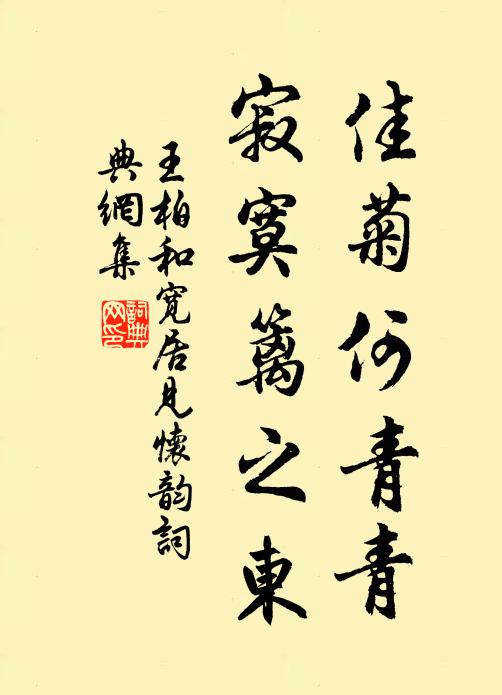 佳菊何青青
寂寞篱之東
王柏和寬居見懷韵詞
典網集
詞典
网印